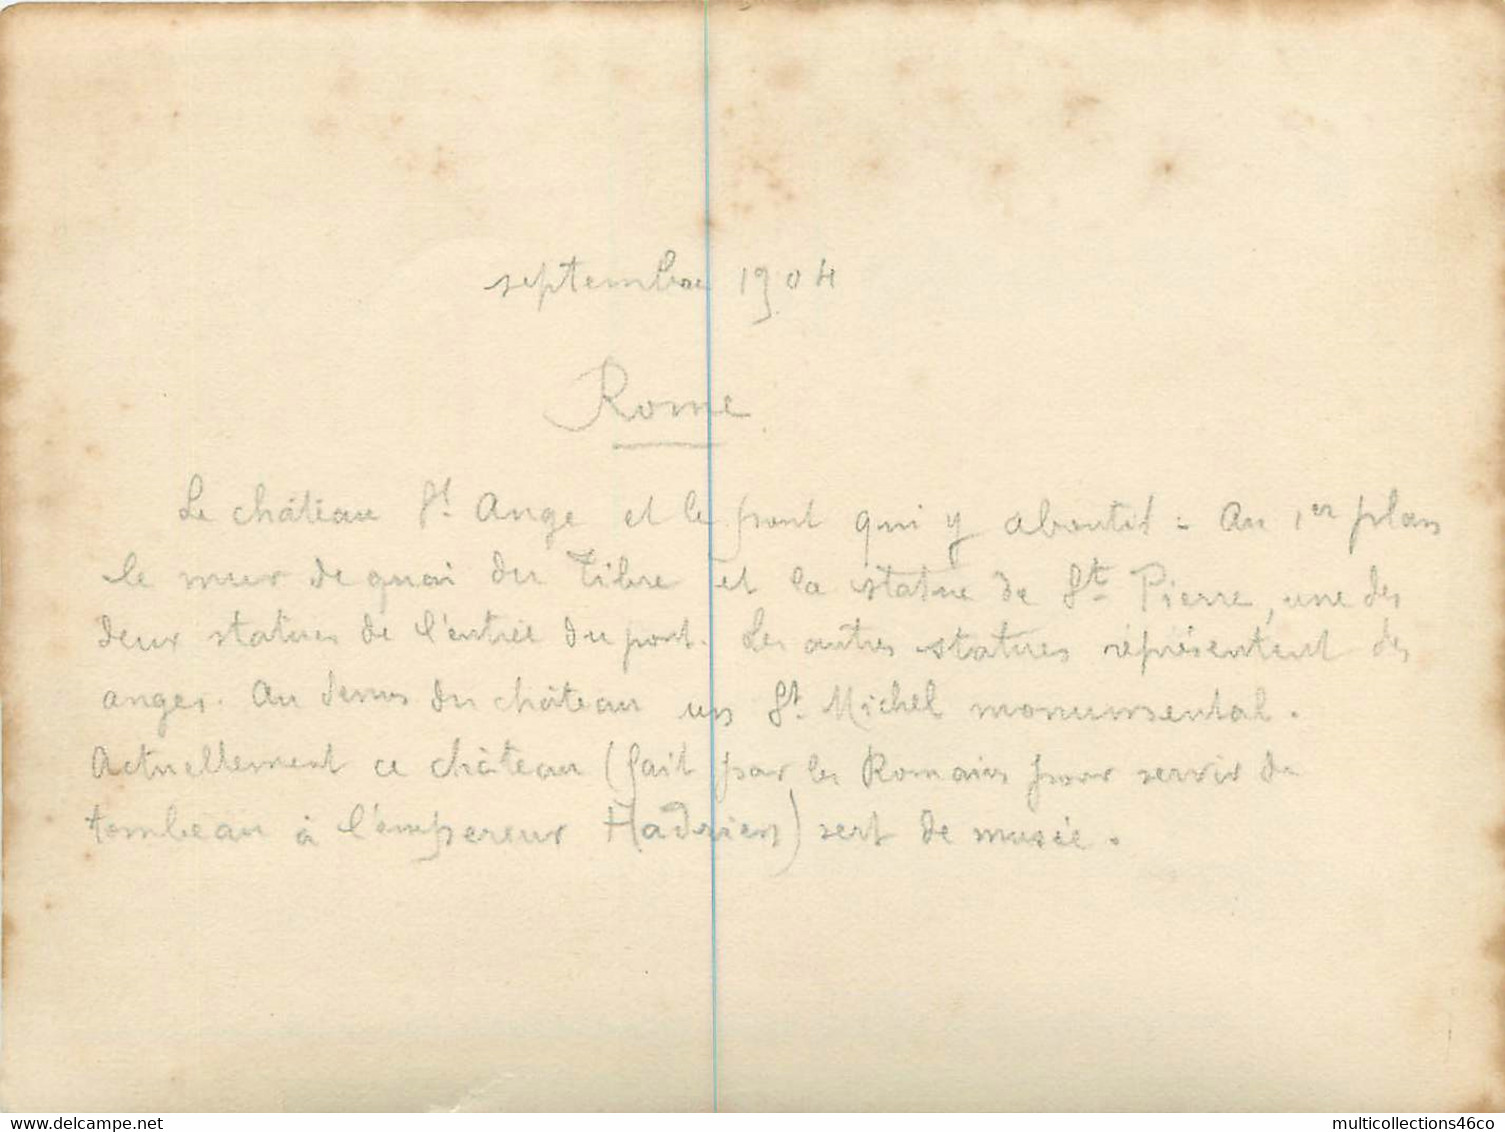 septembre 1904
Rome
Le château St Ange et le pont qui y aboutit. Au 1er plan
le mur de quai du Tibre et la statue de St Pierre, une des
deux statues de l'entrée du pont. Les autres statues représentent des
anges. Au dessus du château un St Michel monumental.
Actuellement ce château (fait par les Romains pour servir de
tombeau à l'empereur Hadrien) sert de musée.
www.delcampe.net
multicollections46co